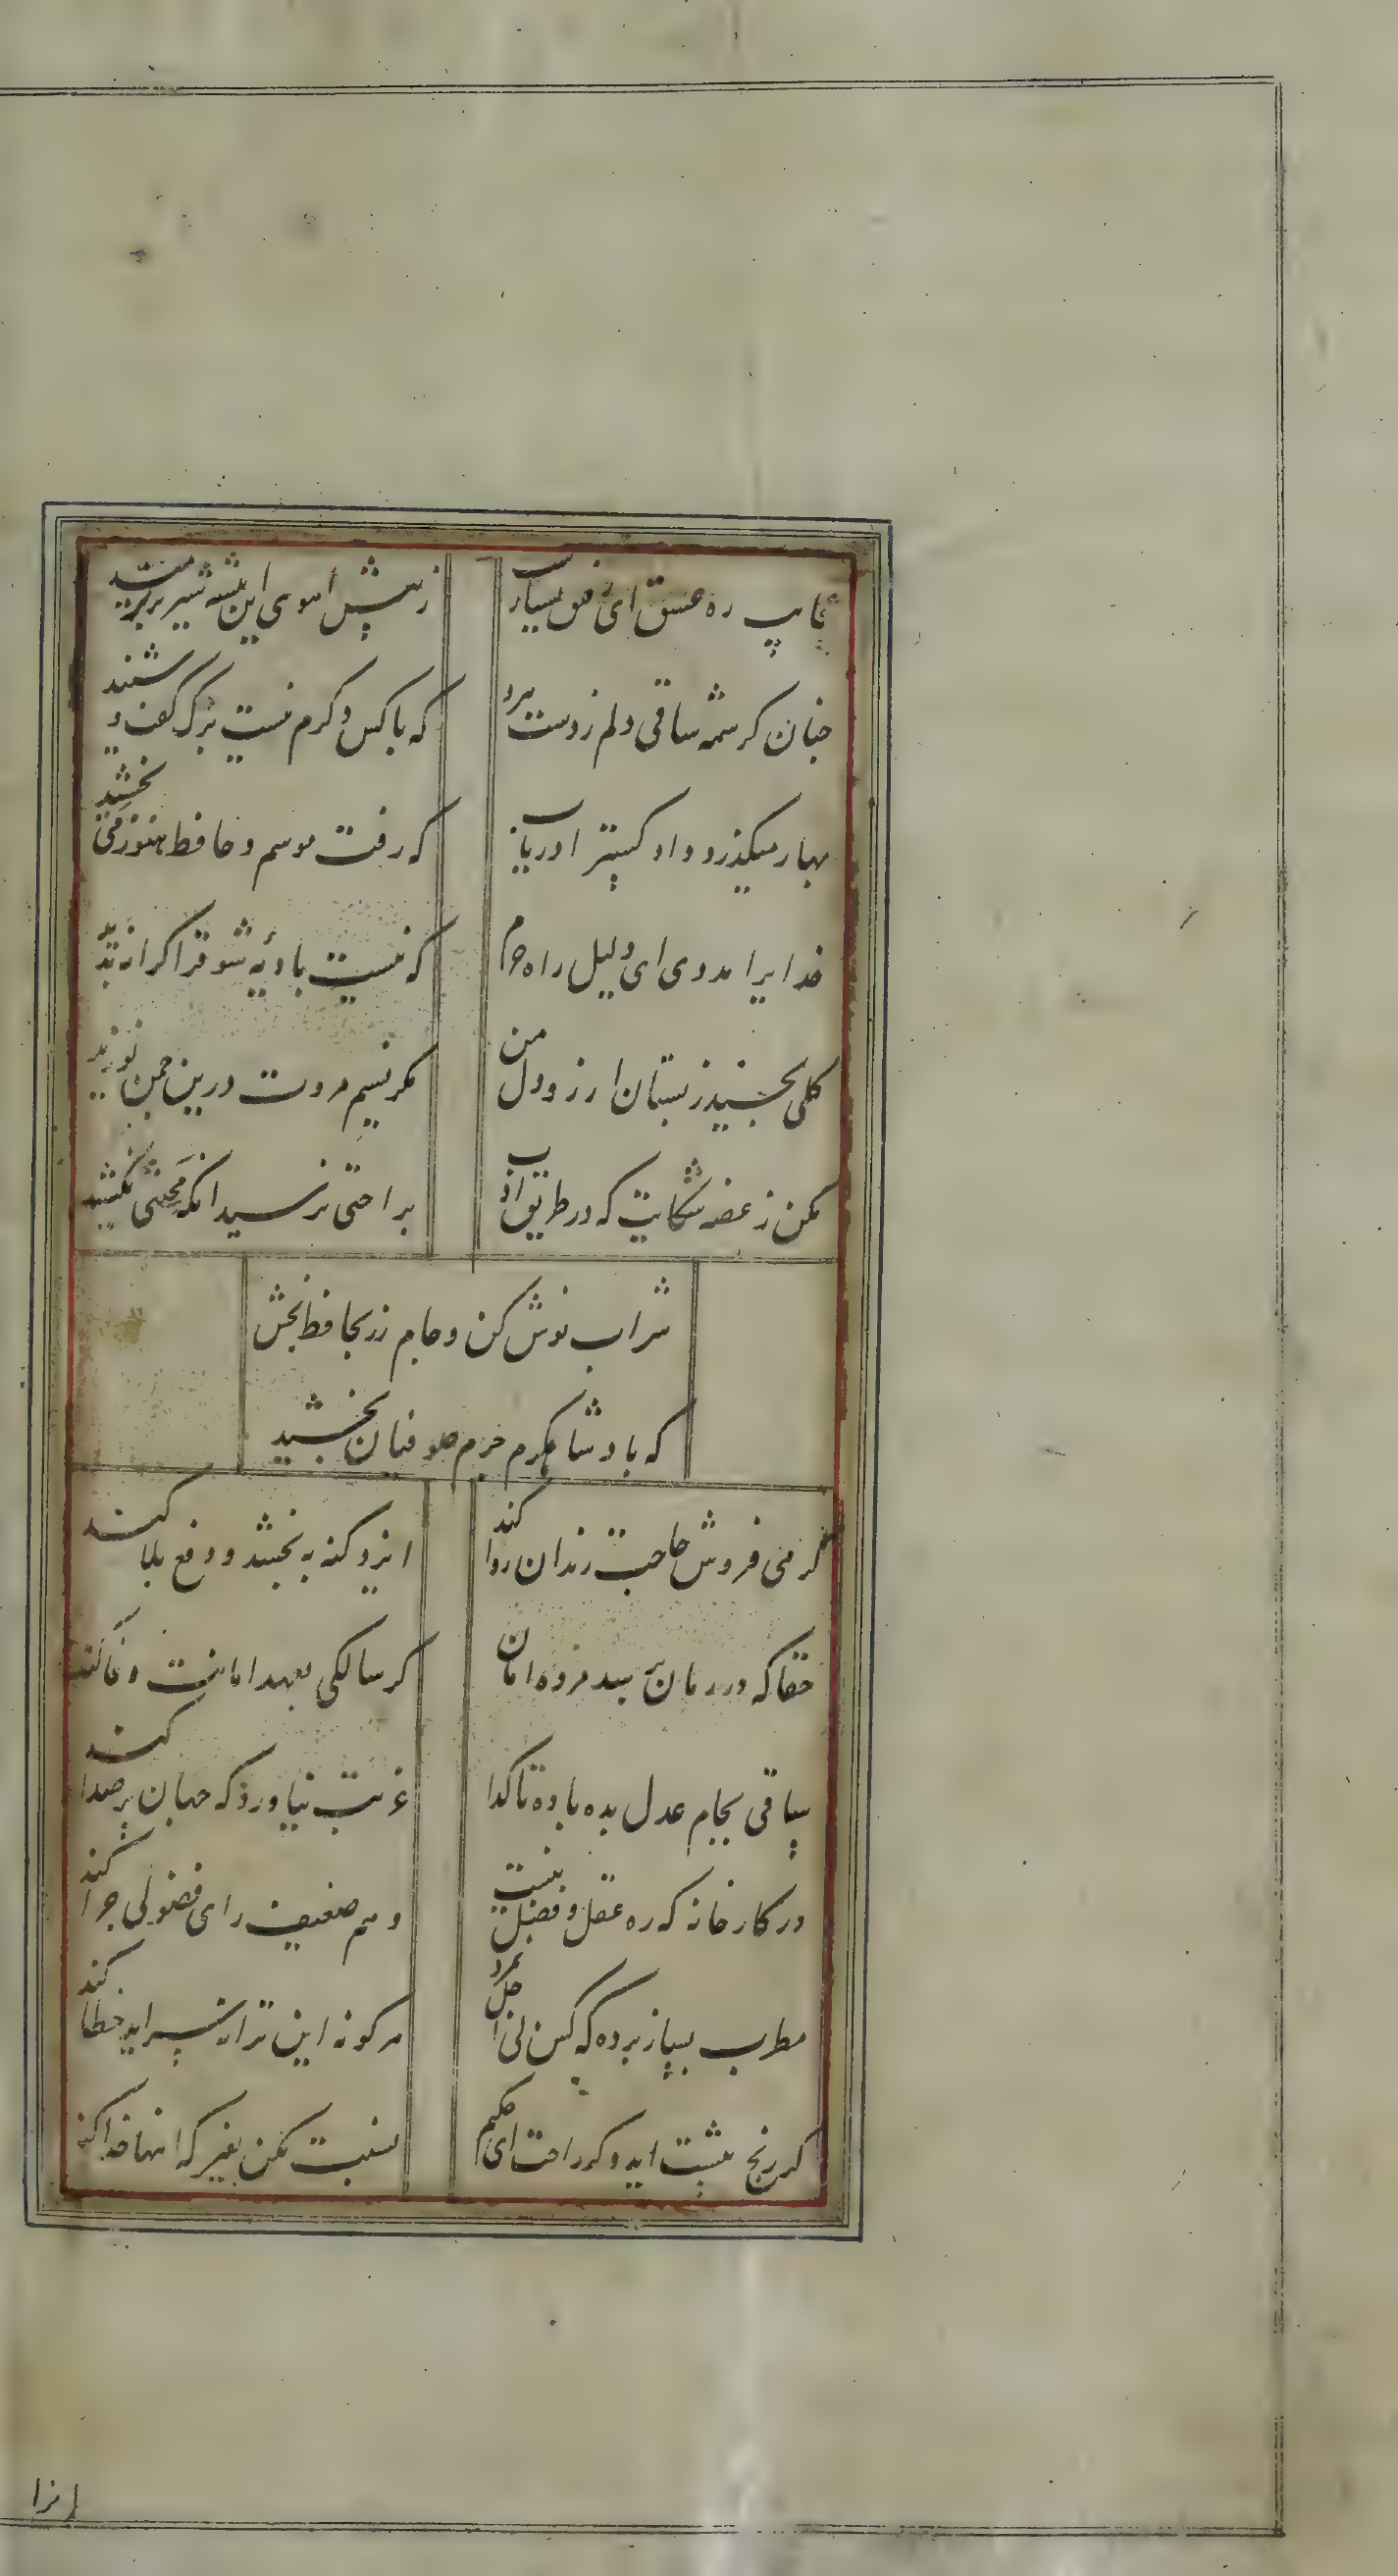 عجایب ره عشق ای رفیق بسیارست
ز پیش اهوی این بیشه شیر نر برمید
چنان کرشمه ساقی دلم ز دست ببرد
که با کس دکرم نیست برک گفت و شنید
بهار میکذرد داد کسترا دریاب
که رفت موسم و حافظ هنوز می نچشید
خدایرا مددی ای دلیل راه حرم
که نیست بادیهٔ شوقرا کرانه پدید
کلی نچید ز بستان ارزو دل من
مکر نسیم مروت درین چمن نوزید
مکن ز غصه شکایت که در طریق ادب
براحتی نرسید انکه محنتی نکشید
شراب نوش کن و جام زر بحافظ بخش
که پادشا بکرم جرم صوفیان بخشید
کر می فروش حاجت رندان روا کند
ایزد کنه به بخشد و دفع بلا کند
حقا که در زمان برسد مژده امان
کر سالکی بعهد امانت وفا کند
ساقی بجام عدل بده باده تا کدا
غیرت نیاورد که جهان پر صدا کند
در کارخانه که ره عقل و فضل نیست
وهم ضعیف رای فضولی چرا کند
مطرب بساز پرده که کس بی اجل نمرد
هر کو نه این ترانه سراید خطا کند
کر رنج پیشت اید و کر راحت ای حکیم
نسبت مکن بغیر که اینها خدا کند
انرا